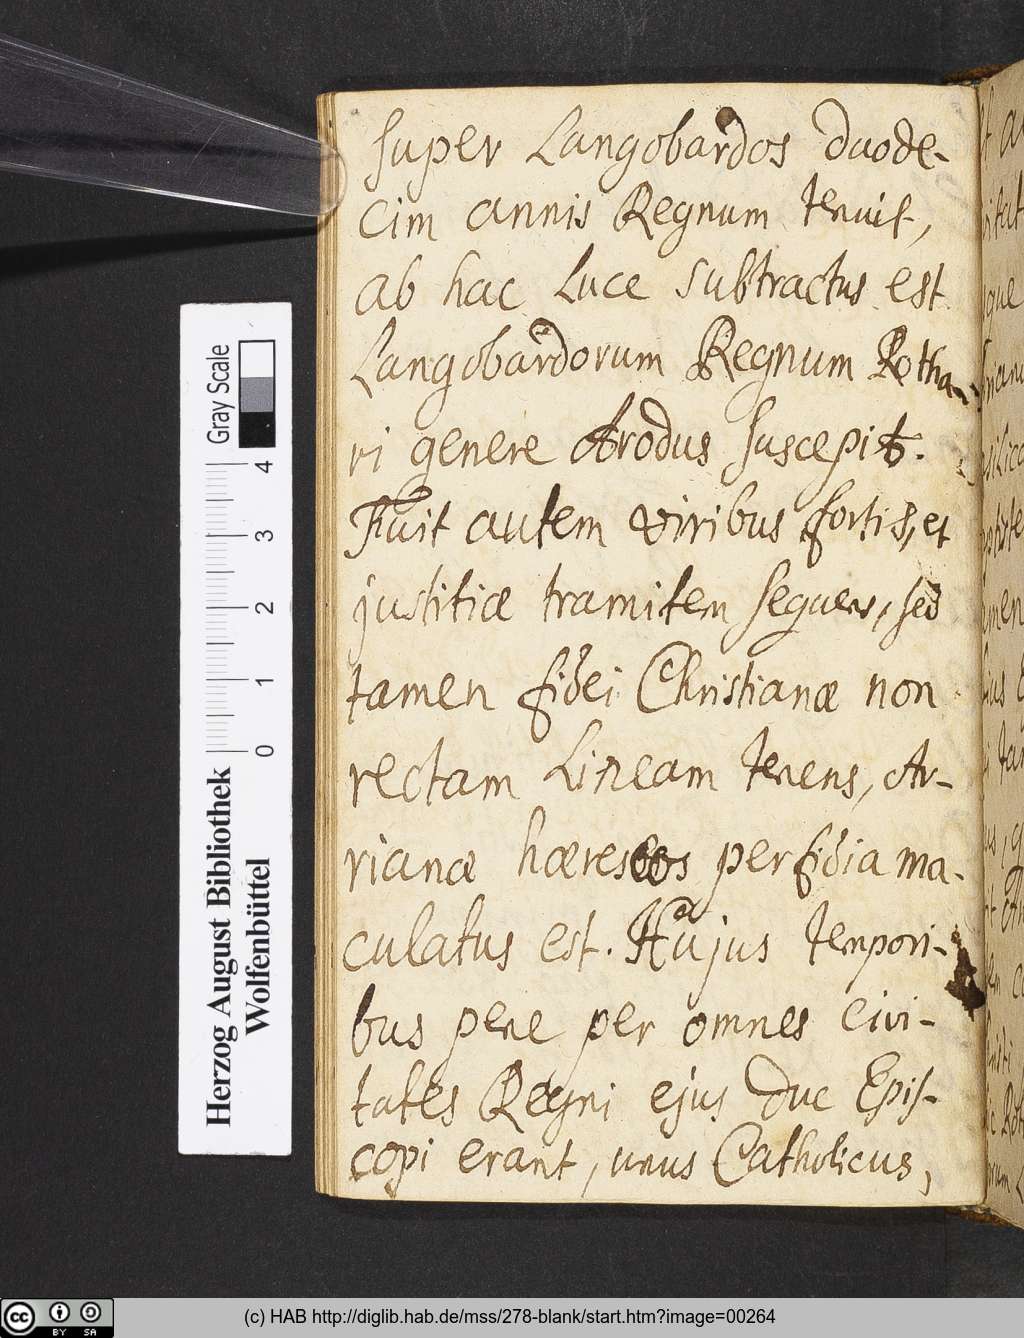 super Langobardos duode-
cim annis Regnum tenuit,
ab hac Luce subtractus est
Langobardorum Regnum Rotha-
ri genere Arodus suscepit.
Fuit autem viribus fortis, et
justitiæ tramitem sequens, sed
tamen fidei Christianæ non
rectam Lineam tenens, Ar-
rianæ hæreseos perfidia ma-
culatus est. Hujus tempori-
bus pene per omnes civi-
tates Regni ejus duc Epis-
copi erant, unus Catholicus,
Gray Scale
0 1 2 3 4
Herzog August Bibliothek
Wolfenbüttel
cc BY SA
(c) HAB http://diglib.hab.de/mss/278-blank/start.htm?image=00264